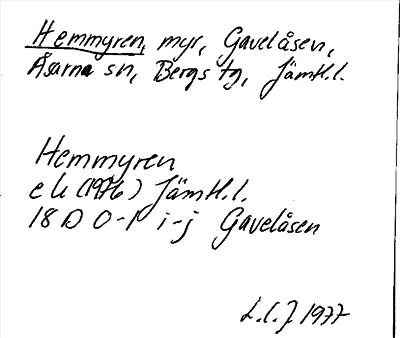 Hemmyren, myr, Gavelåsen,
Åsarna sn, Bergs tg, Jämtl.l.
Hemmyren
ek (1976) Jämtl.l.
18 D 0-1 i-j Gavelåsen
L.l.J 1977